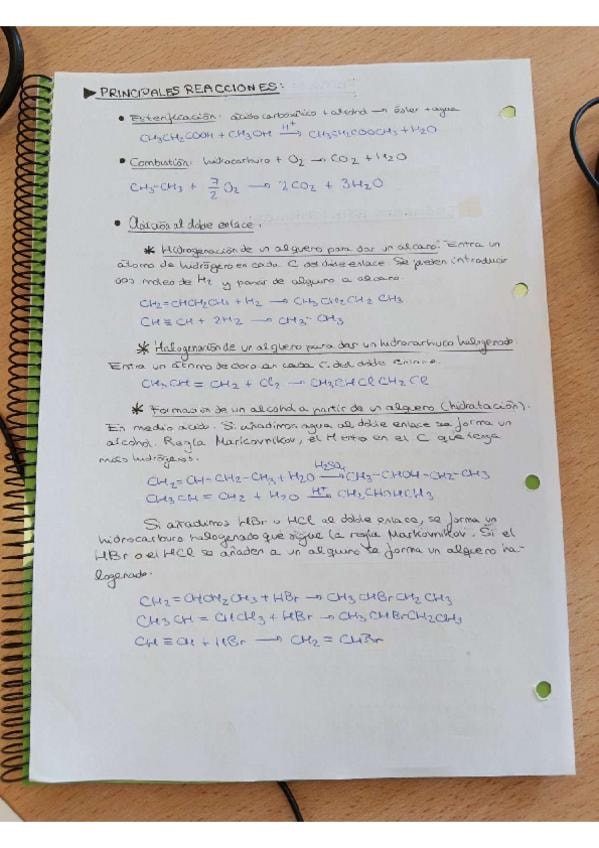 ▶ PRINCIPALES REACCIONES:
• Esterificación: ácido carboxílico + alcohol → éster + agua
CH3CH2COOH + CH3OH H+→ CH3CH2COOCH3 + H2O
• Combustión: hidrocarburo + O2 → CO2 + H2O
CH3-CH3 + 7/2 O2 → 2CO2 + 3H2O
• Adición al doble enlace.
* Hidrogenación de un alqueno para dar un alcano: Entra un
átomo de hidrógeno en cada C del doble enlace. Se pueden introducir
dos moles de H2 y pasar de alquino a alcano.
CH2=CHCH2CH3 + H2 → CH3CH2CH2CH3
CH≡CH + 2H2 → CH3-CH3
* Halogenación de un alqueno para dar un hidrocarburo halogenado.
Entra un átomo de cloro en cada C del doble enlace.
CH3CH=CH2 + Cl2 → CH3CHClCH2Cl
* Formación de un alcohol a partir de un alqueno (hidratación).
En medio ácido. Si añadimos agua al doble enlace se forma un
alcohol. Regla Markovnikov, el H entra en el C que tenga
más hidrógenos.
CH2=CH-CH2-CH3 + H2O H2SO4→ CH3-CHOH-CH2-CH3
CH3CH=CH2 + H2O H+→ CH3CHOHCH3
Si añadimos HBr o HCl al doble enlace, se forma un
hidrocarburo halogenado que sigue la regla Markovnikov. Si el
HBr o el HCl se añaden a un alquino se forma un alqueno ha-
logenado.
CH2=CHCH2CH3 + HBr → CH3CHBrCH2CH3
CH3CH=CHCH3 + HBr → CH3CHBrCH2CH3
CH≡CH + HBr → CH2=CHBr